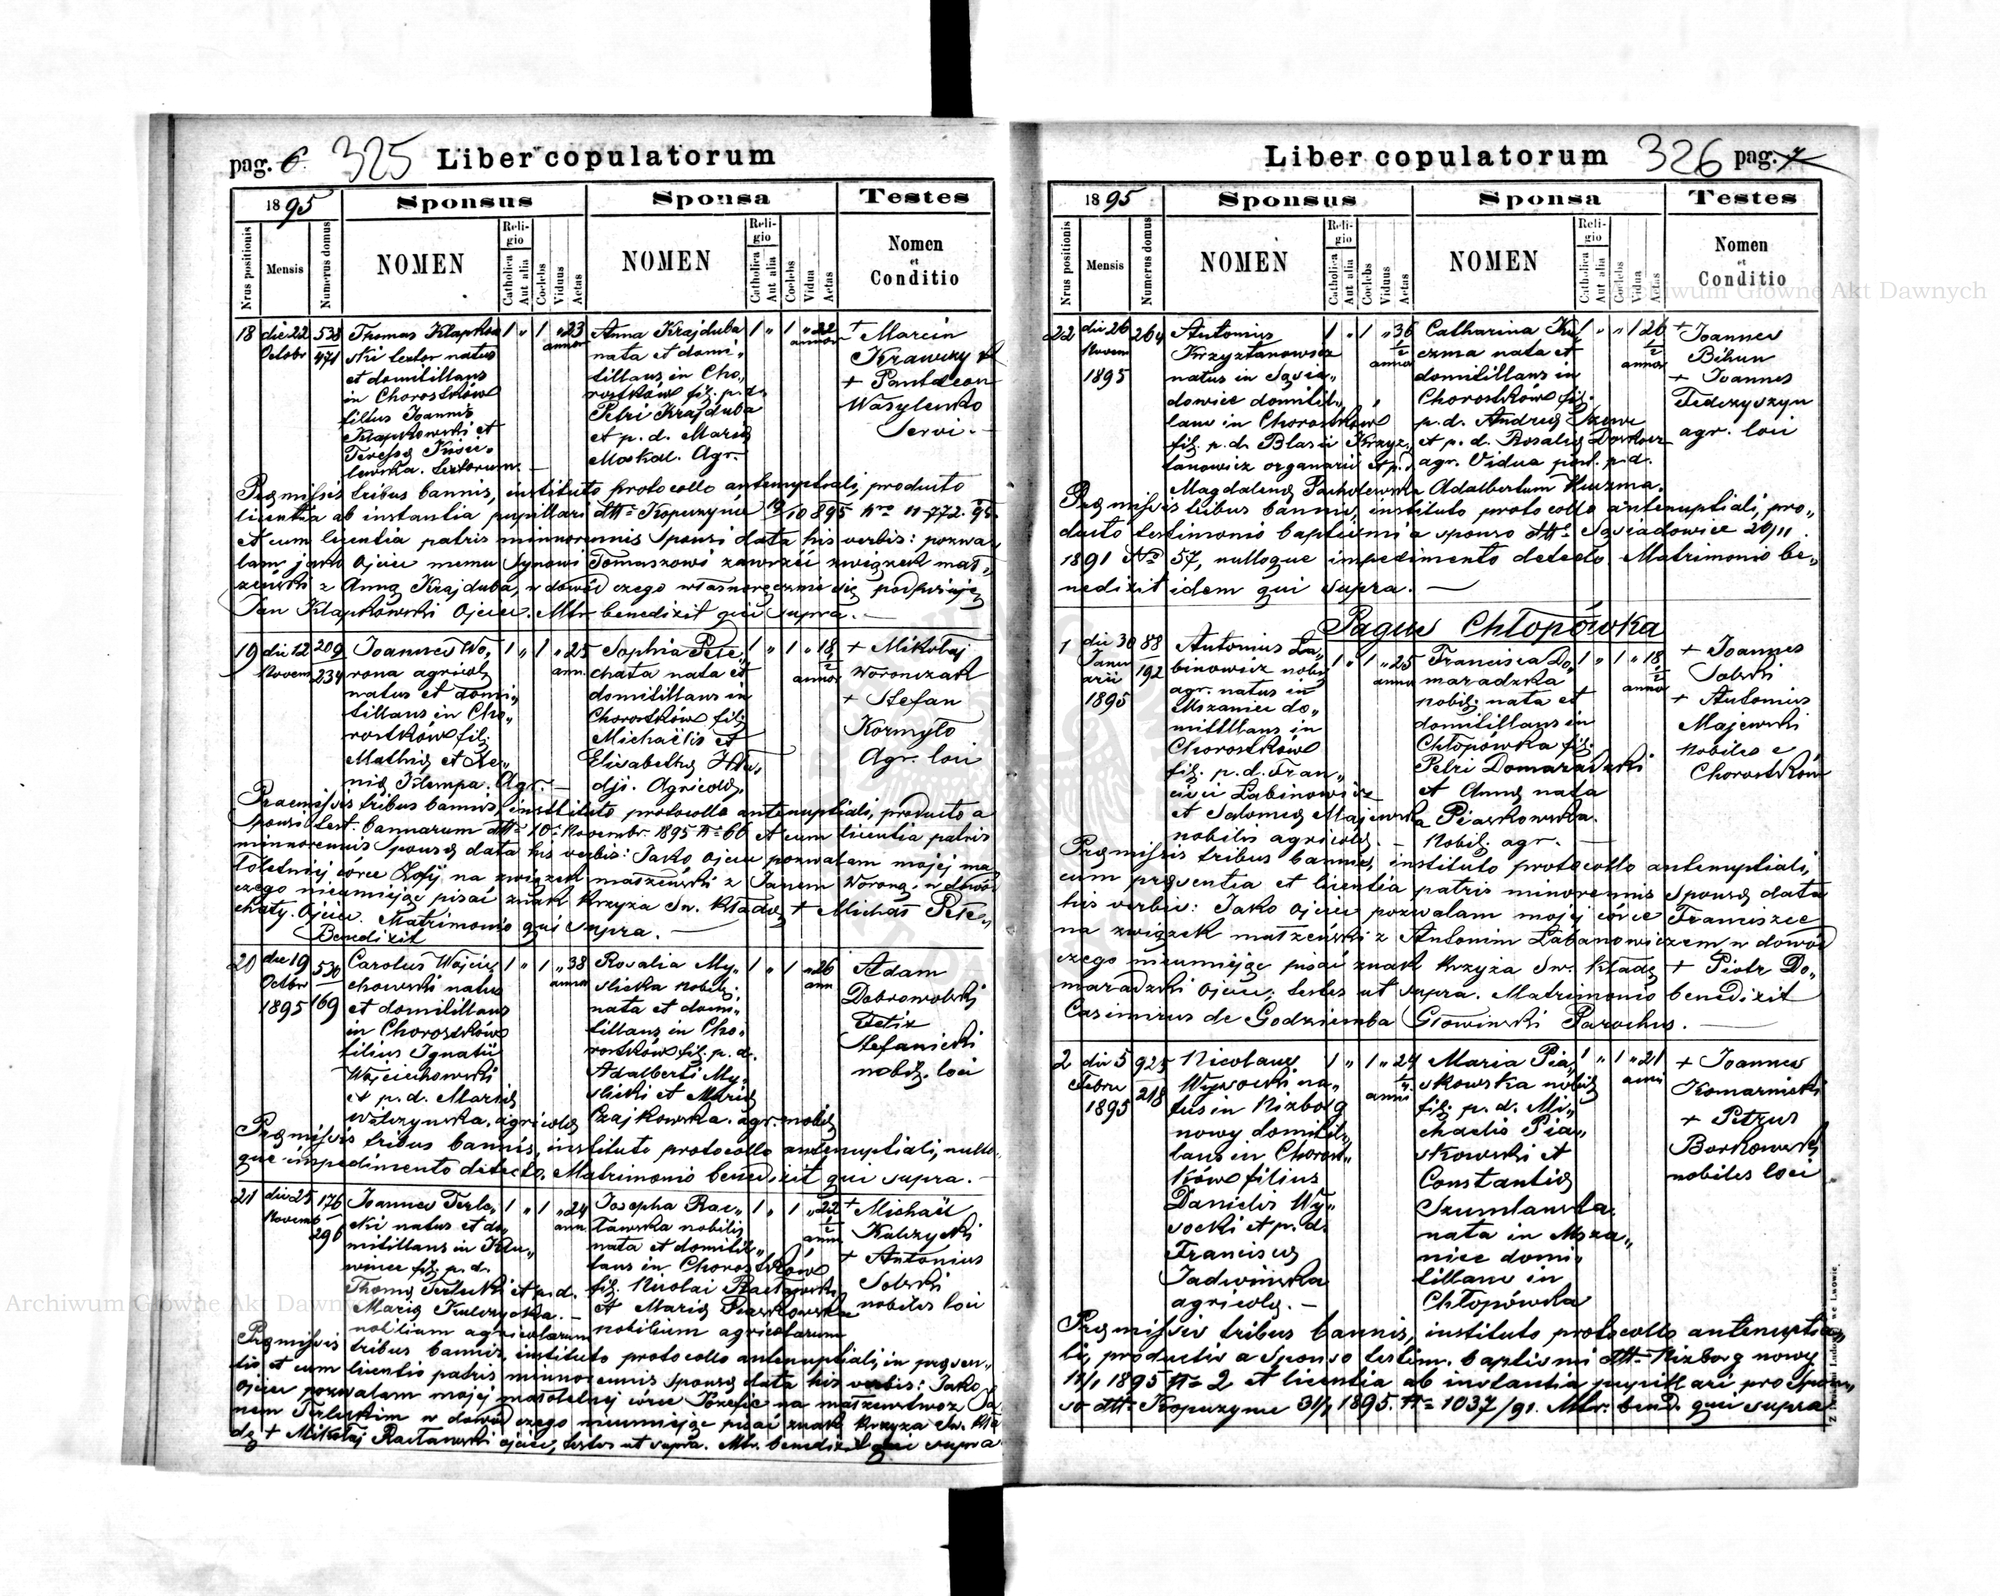 pag. 6. 325 Liber copulatorum
1895 Sponsus Sponsa Testes
Nrus positionis Mensis Numerus domus NOMEN Religio Catholica Aut alia Coelebs Viduus Aetas NOMEN Religio Catholica Aut alia Coelebs Vidua Aetas Nomen et Conditio
18 die 22 Octobr 538 471
Thomas Klapkow
ski textor natus
et domitillans
in Chorostków
filius Joannis
Klapkowski et
Teresię
lewska. textorum.
1 " 1 " 23 annor
Anna Krajduba
nata et domi„
tillans in Cho„
rostków fil. p. d.
Petri Krajduba
et p. d. Marię
Moskal. Agr.
1 " 1 " 22 annor
+ Marcin
Krawczy
+ Pantaleon
Wasylenko
Servi.
Pręmissis tribus bannis, instituto protocollo antenuptiali, producto
licentia ab instantia pupillari dtto Kopyczyńce 19/10 895 Nro 11772. 95
et cum licentia patris minorennis Sponsi data his verbis: pozwa
lam jako Ojciec memu Synowi Tomaszowi zawrzeć związek mał„
żeński z Anną Krajduba, w dowód czego własnoręcznie się podpisuję
Jan Klapkowski Ojciec. Mtr. benedixit qui supra.
19 die 12 Novem 209 234
Joannes Wo„
rona agricol.
natus et domi„
tillans in Cho„
rostków fil.
Mathię et Xe„
nię Klempa. Agr.
1 " 1 " 25 ann.
Sophia Pele„
chata nata et
domitillans in
Chorostków fil.
Michaëlis et
Elisabethę
dji. Agricolę.
1 " 1 " 18 1/2 annor
+ Mikołaj
Woronczak
+ Stefan
Kormyło
Agr. loci
Praemissis tribus bannis, instituto protocollo antenuptiali, producto a
Sponsi test. bannarum dtto 10 Novembr. 1895 No 66 et cum licentia patris
minorennis Sponsę data his verbis: Jako Ojciec pozwalam mojej ma
łoletniej córce Zofij na związek małżeński z Janem Worona, w dowód
czego nieumiejąc pisać znak krzyża Św. kładę + Michał Pele„
chaty. Ojciec. Matrimonio qui supra.
Benedixit
20 die 19 Octbr 1895 530 169
Carolus Wojcie„
chowski natus
et domitillans
in Chorostków
filius Ignatii
Wojciechowski
et p. d. Marię
Walczynska. agricolę
1 " 1 " 38 annor
Rosalia My„
slicka nobil.
nata et domi„
tillans in Cho„
rostków fil. p. d.
Adalberti My„
slicki et Marię
Czajkowska. agr. nobil.
1 " 1 " 26 ann
Adam
Dobrowolski
Felix
Stefanicki
nobil. loci
Pręmissis tribus bannis, instituto protocollo antenuptiali, nullo„
que impedimento detecto, Matrimonio benedixit qui supra.
21 die 25 Novemb 176 296
Joannes Terle„
cki natus et do„
mitillans in Klu„
wince fil. p. d.
Thomę Terlecki et p. d.
Marię Kulczycka.
nobilium agricolarum
1 " 1 " 24 ann.
Josepha Rac„
ławska nobilis
nata et domitil„
lans in Chorostków
fil. Nicolai Racławski
et Marię Piaskowska
nobilium agricolarum
1 " 1 " 22 1/2 annor
+ Michaël
Kulczycki
+ Antonius
Solski
nobiles loci
Pręmissis tribus bannis, instituto protocollo antenuptiali, in pręsen„
tia et cum licentia patris minorennis Sponsę data his verbis: Jako
Ojciec pozwalam mojej małoletniej córce Józefie na małżeństwo z Ja
nem Terleckim w dowód czego nieumiejąc pisać znak krzyża Św. kła
dę + Mikołaj Racławski ojciec, testes ut supra. Mtr. benedixit qui supra
Liber copulatorum 326 pag. 7
1895 Sponsus Sponsa Testes
Nrus positionis Mensis Numerus domus NOMEN Religio Catholica Aut alia Coelebs Viduus Aetas NOMEN Religio Catholica Aut alia Coelebs Vidua Aetas Nomen et Conditio
22 die 26 Novem 1895 264
Antonius
Krzyżtanowicz
natus in Sąsia„
dowice domitil„
lans in Chorostków
fil. p. d. Blasii Krzyż„
tanowicz organarii et p. d.
Magdalenę Pacholewska
1 " 1 " 36 1/2 annor
Catharina Ku„
czma nata et
domitillans in
Chorostków fil.
p. d. Andreę Szewc
et p. d. Rosalię
agr. Vidua post p. d.
Adalbertum Kuczma.
1 " " 1 26 1/2 annor
+ Joannes
Bihun
+ Joannes
Fedczyszyn
agr. loci
Pręmissis tribus bannis, instituto protocollo antenuptiali, pro„
ducto testimonio baptismi a sponso dtto Sąsiadowice 20/11
1891 No 57, nulloque impedimento detecto Matrimonio be„
nedixit idem qui supra.
Pagus Chłopówka
1 die 30 Januarii 1895 88 192
Antonius La„
binowicz nobil.
agr. natus in
Mszaniec do„
mitillans in
Chorostków
fil. p. d. Fran„
cisci Labinowicz
et Salomeę Majewska
nobilis agricolę.
1 " 1 " 25 annor
Francisca Do„
maradzka
nobil. nata et
domitillans in
Chłopówka fil.
Petri Domaradzki
et Annę nata
Piaskowska.
Nobil. agr.
1 " 1 " 18 1/2 annor
+ Joannes
Solski
+ Antonius
Majewski
nobiles e
Chorostków
Pręmissis tribus bannis, instituto protocollo antenuptiali,
cum pręsentia et licentia patris minorennis Sponsę data
his verbis: Jako Ojciec pozwalam mojej córce Franciszce
na związek małżeński z Antonim Labanowiczem, w dowód
czego nieumiejąc pisać znak krzyża Św. kładę + Piotr Do„
maradzki Ojciec; testes ut supra. Matrimonio benedixit
Casimirus de Godziemba Głowiński Parochus.
2 die 5 Febru 1895 925 218
Nicolaus
Wysocki na„
tus in Nizborg
nowy domitil„
lans in Chorost„
ków filius
Danielis Wy„
socki et p. d.
Franciscę
Jadwinska
agricolę.
1 " 1 " 24 1/4 annor
Maria Pia„
skowska nobil.
fil. p. d. Mi„
chaelis Pia„
skowski et
Constantię
Szumlanska.
nata in Msza„
niec domi„
tillans in
Chłopówka
1 " 1 " 21 anni
+ Joannes
Komarnicki
+ Petrus
Borkowski
nobiles loci
Pręmissis tribus bannis, instituto protocollo antenuptia„
li, productis a Sponso testim. baptismi dtto Nizborg nowy
12/1 1895 No 2 et licentia ab instantia pupillari pro Spon„
so dtto Kopyczyńce 31/1 1895. No 1037/91. Mtr. bened. qui supra
Archiwum Główne Akt Dawnych
Archiwum Główne Akt Dawnych